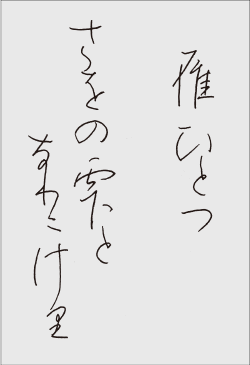 雁ひとつ
さをの雫と
なりにけ里